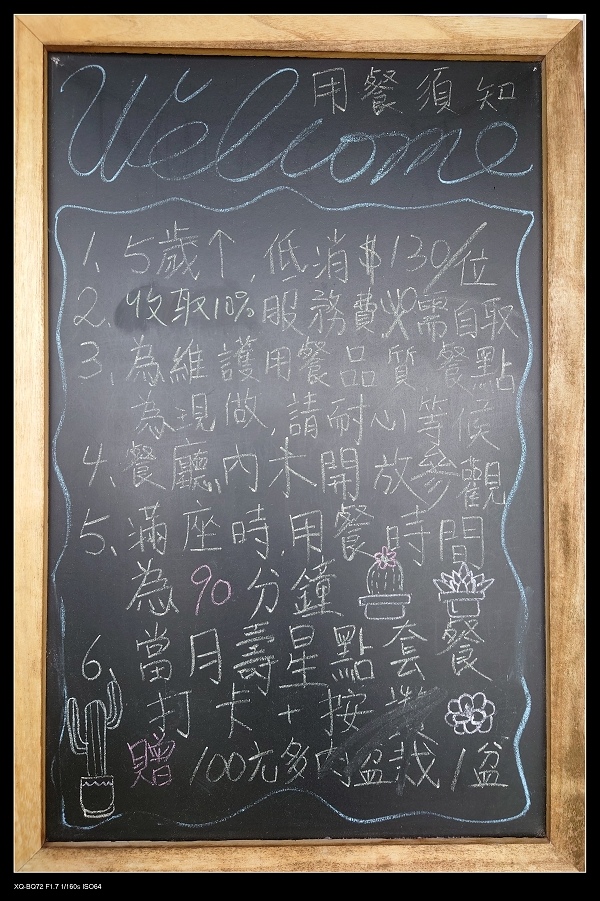 用餐須知
Welcome
1、5歲↑,低消$130/位
2、收取10%服務費,水需自取
3、為維護用餐品質,餐點
為現做,請耐心等候
4、餐廳內未開放參觀
5、滿座時,用餐時間
為90分鐘
6、當月壽星點套餐
打卡+按讚
贈100元多肉盆栽1盆
XQ-BQ72 F1.7 1/160s ISO64